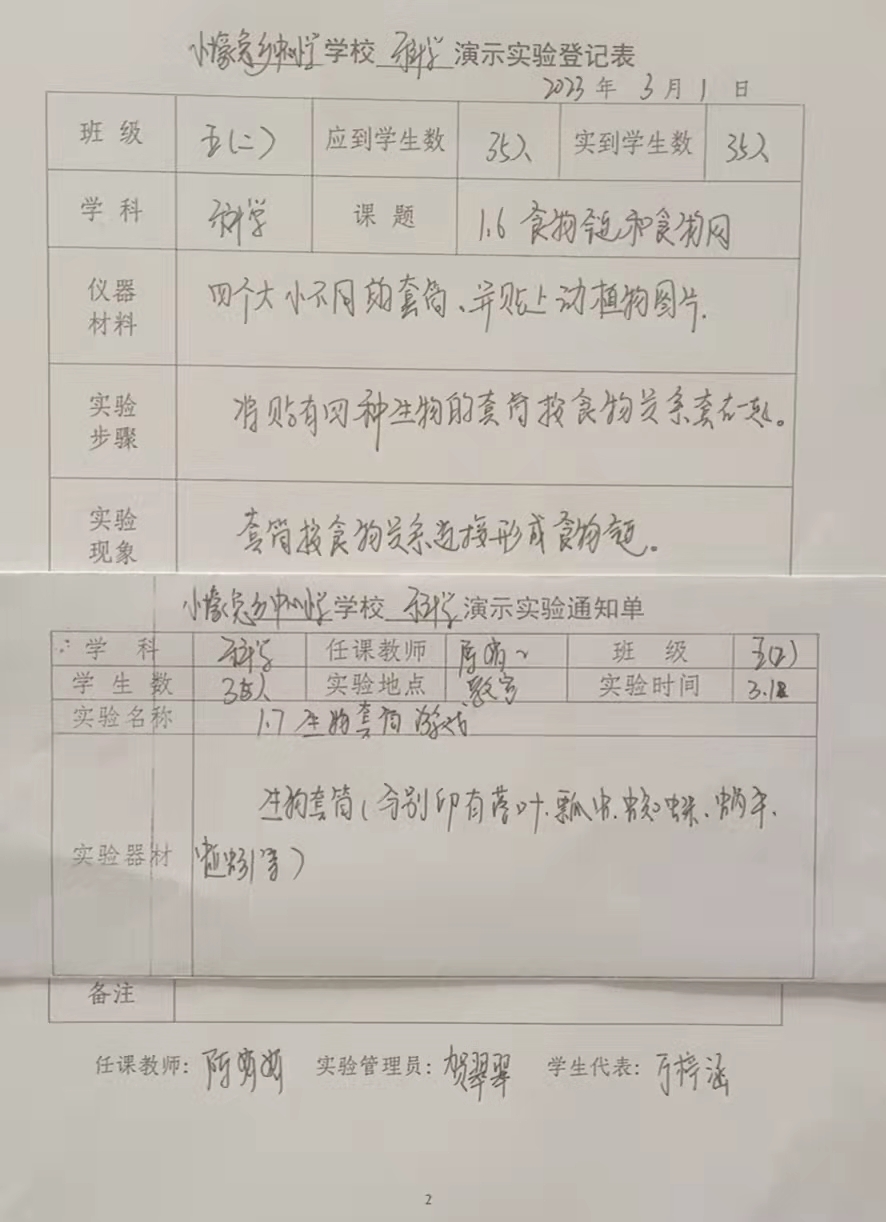 乡中心学学校 科学 演示实验登记表
2023 年 3 月 1 日
班 级 五(二) 应到学生数 35人 实到学生数 35人
学 科 科学 课 题 1.6 食物链和食物网
仪器 四个大小不同的套筒、并贴上动植物图片.
材料
实验 将贴有四种生物的套筒按食物关系套在一起。
步骤
实验 套筒按食物关系连接形成食物链。
现象
乡中心学学校 科学 演示实验通知单
学 科 科学 任课教师 班 级 五(2)
学 生 数 35人 实验地点 教室 实验时间
实验名称 1.7 生物套筒游戏
生物套筒(分别印有落叶.瓢虫.蜘蛛.蜗牛.
实验器材 蚯蚓等)
备注
任课教师: 陈 实验管理员: 贺翠翠 学生代表: 梓涵
2